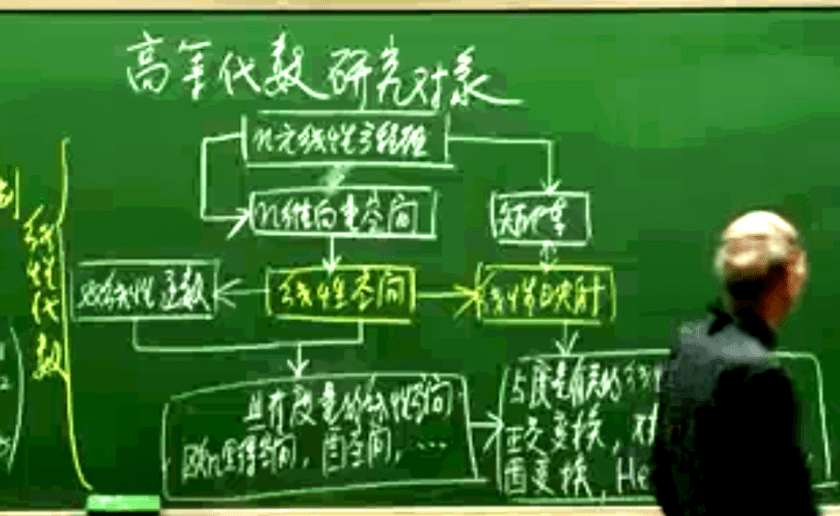 高等代数研究对象
n元线性方程组
n维向量空间
矩阵
线性代数
双线性函数
线性空间
线性映射
具有度量的线性空间
欧几里得空间，酉空间，…
与度量有关的线性
正交变换，对
酉变换，He